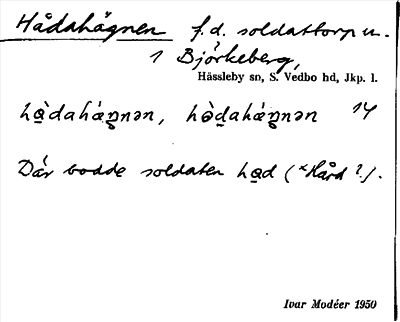 Hådahägnen f.d. soldattorp u.
1 Björkeberg,
Hässleby sn, S. Vedbo hd, Jkp. l.
hàdahǽŋnən, hə̀dahǽŋnən 14
Där bodde soldaten had (*Hård?).
Ivar Modéer 1950